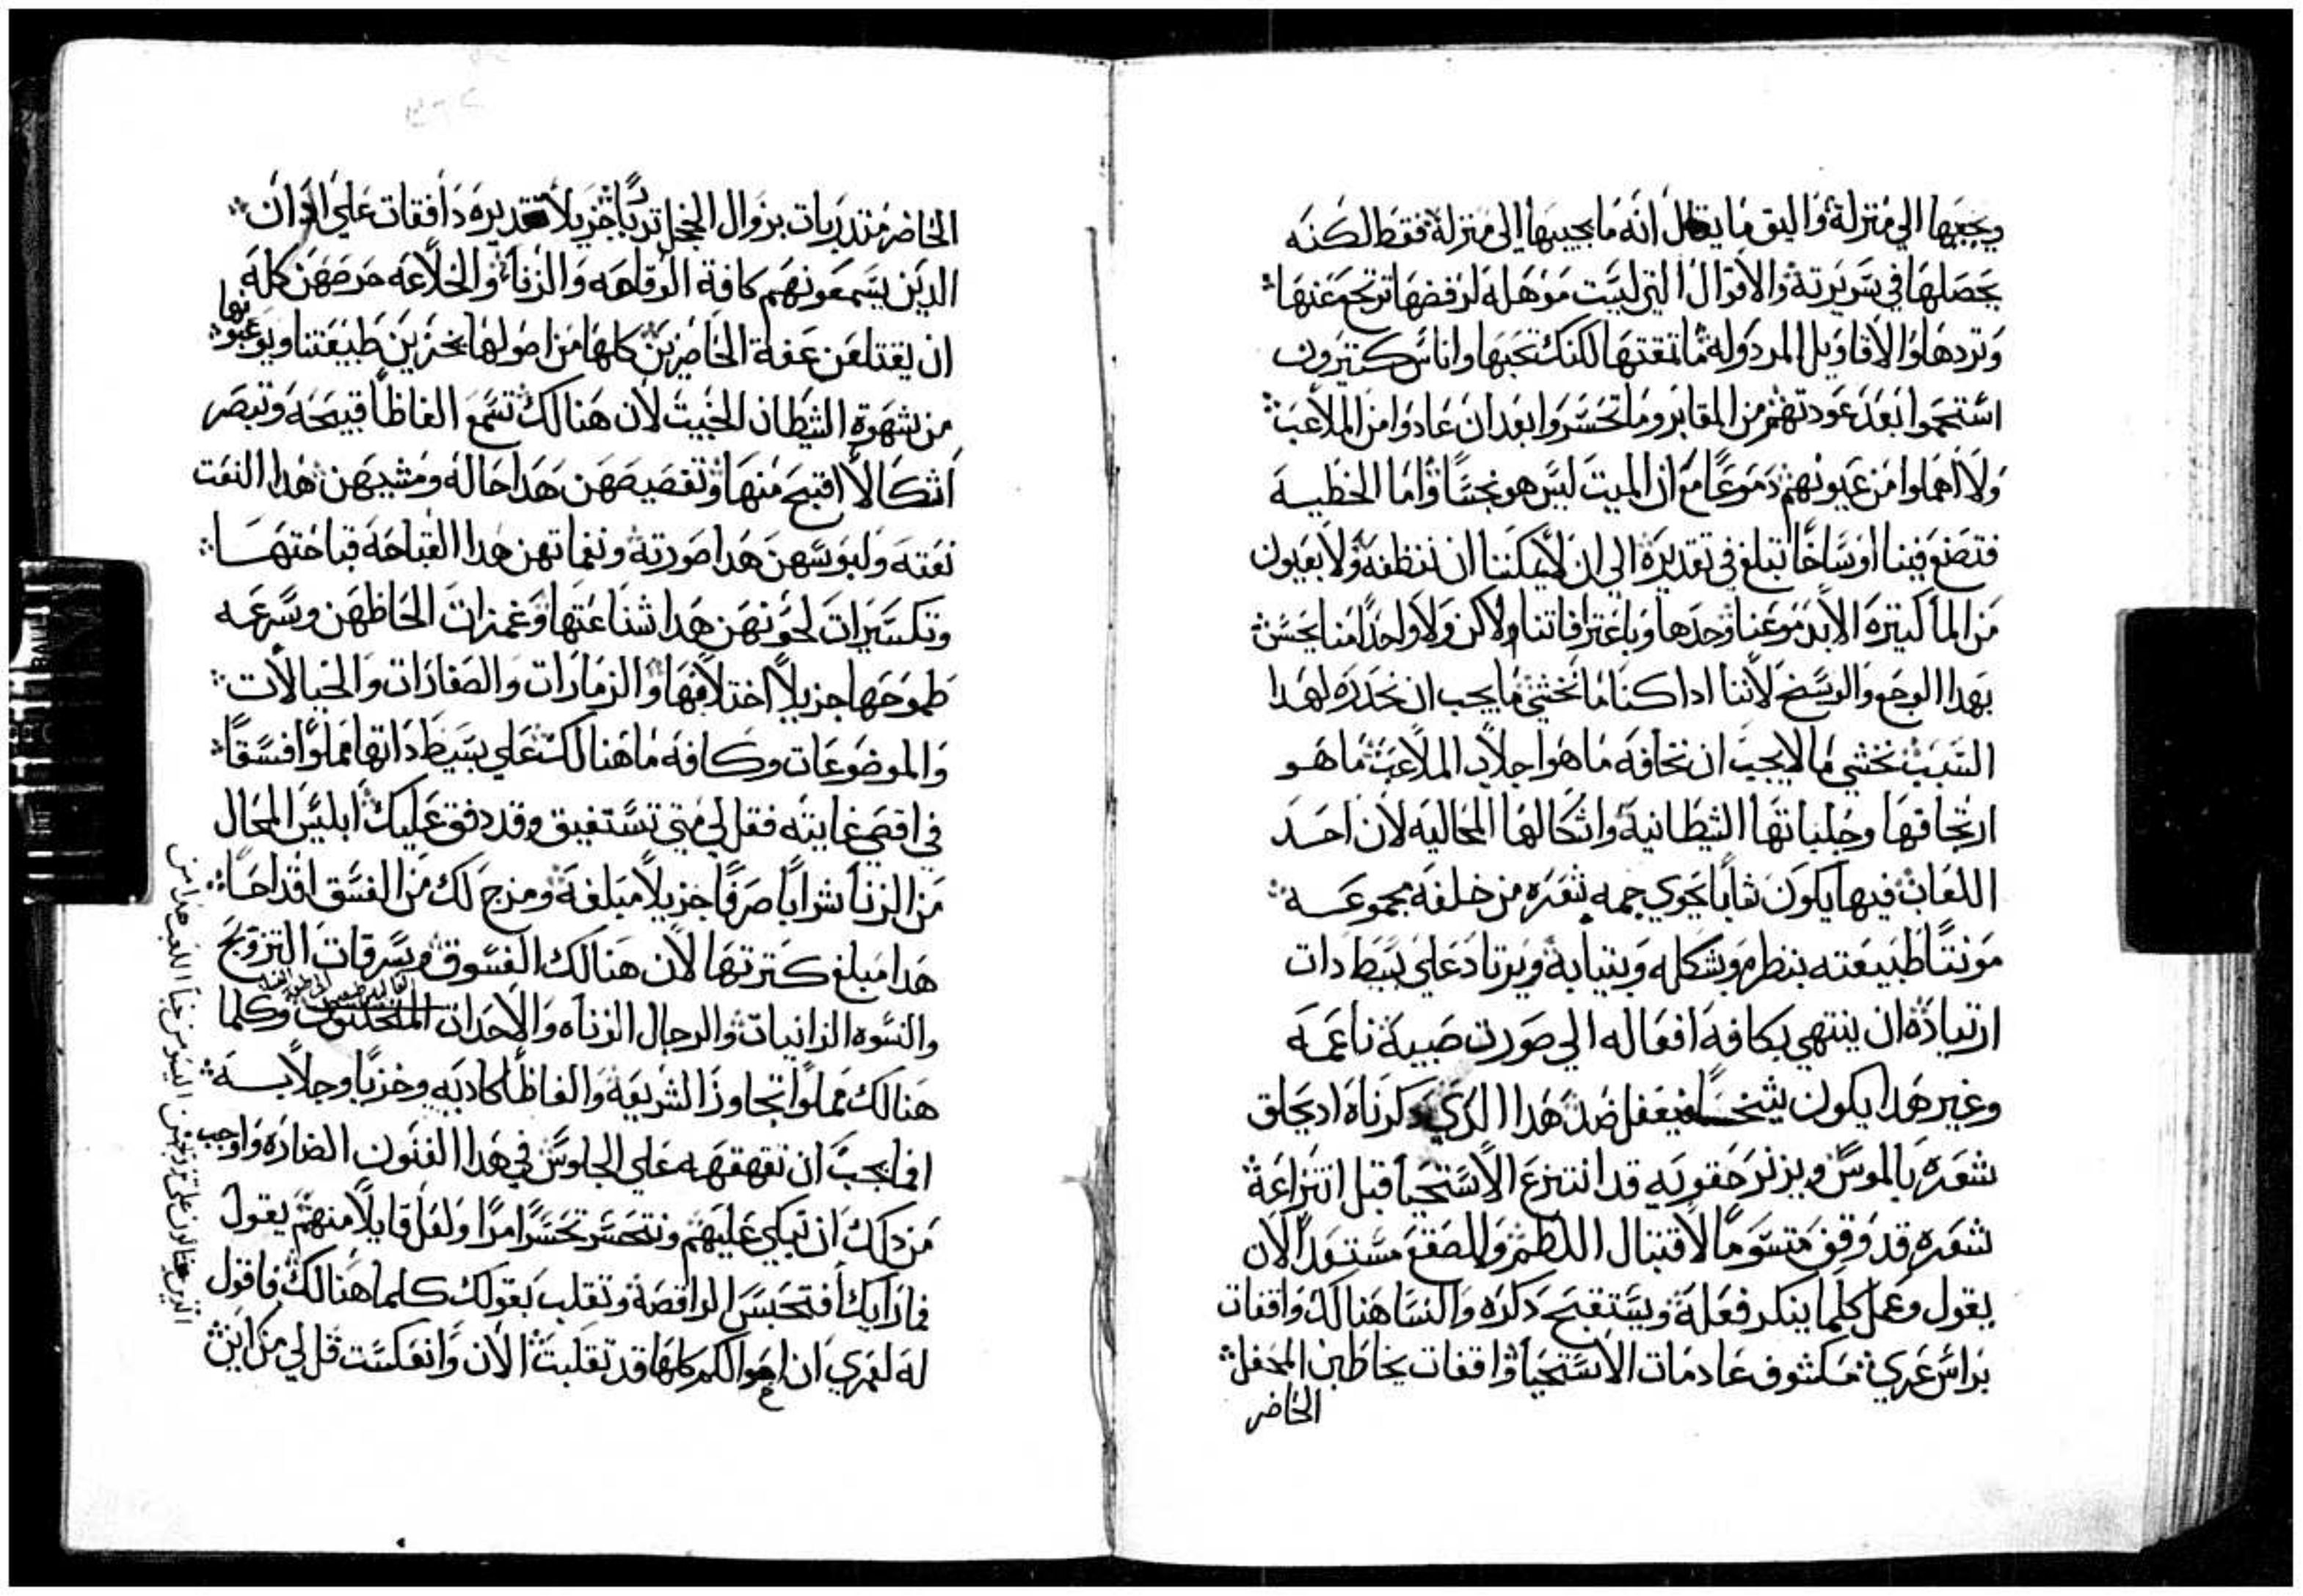 ويجيبها الي منزله واليق ما يقال انه ما يجيبها الي منزله فقط لكنه
يحصلها في سريرته والاقوال التي ليست موهله لرفضها ترتجع عنها
وتردها والاقاويل المردوله ما تمقتها لكنك تحبها واناس كتيرون
استحموا بعد عودتهم من المقابر وما تحسروا بعد ان عادوا من الملاعب
ولا اهملوا من عيونهم دموعًا مع ان الميت ليس هو نجسًا واما الخطيه
فتضع فينا اوساخًا تبلغ في تقديره الي ان لا يمكننا ان ننظفه ولا بعيون
من الما كتيره الا بدموعنا وحدها وباعترافاتنا ولاكن ولا واحدًا منا يحس
بهدا الوجع والوسخ لاننا ادا كنا ما نخشي ما يجب ان نحدره لهدا
السبب نخشي ما لا يجب ان نخافه ما هو اجلاد الملاعب ما هو
ارتجافها وجلباتها الشطانيه واشكالها المحاليه لان احد
اللعاب فيها يكون شابًا يحوي جمه شعره من خلفه مجموعه
مونتًا طبيعته بنظره وبشكله وبتيابه ويرتاد علي بسيط دات
ارتياده ان ينتهي بكافه افعاله الي صورت صبيه ناعمه
وغير هدا يكون شيخًا فيفعل ضد هدا الدي دكرناه اد يحلق
شعره بالموس ويزنر حقويه قد انتزع الاستحيا قبل انتزاعه
شعره قد وقف متسومًا لاقتبال اللطم والصفع مستعدًا لان
يقول وعمل كلما ينكر فعله ويستقبح دكره والنسا هنالك واقفات
براس عري مكشوف عادمات الاستحيا واقفات يخاطبن المحفل
الحاضر
الحاضر متدربات بزوال الخجل تدربًا جزيلًا تقديره دافقات علي ادان
الدين يسمعونهم كافة الوقاهه والزنا والخلاعه حرصهن كله
ان يقتلعن عفة الحاضرين كلها من اصولها بخزين طبيعتنا ويوعبونها
من شهوة الشيطان الخبيث لان هنالك تسمع الفاظًا قبيحه وتبصر
اشكالًا اقبح منها وتقصيصهن هدا حاله ومشيهن هدا النعت
نعته ولبوسهن هدا صورته ونغماتهن هدا القباحه قباحتها
وتكسيرات لحونهن هدا شناعتها وغمزات الحاظهن وسرعه
طموحها جزيلًا اختلافها والزمارات والصفارات والخيالات
والموضوعات وكافه ما هنالك علي بسيط داتها مملوا فسقًا
في اقصي غايته فقل لي متي تستفيق وقد دفق عليك ابليس المحال
من الزنا شرابًا صرفًا جزيلًا مبلغه ومزج لك من الفسق اقداحًا
هدا مبلغ كترتها لان هنالك الفسوق وسرقات التزويج
والنسوه الزانيات والرجال الزناه والاحدات المتخنتون وكلما
هنالك مملوا تجاوز الشريعه والفاظًا كادبه وخزيًا وجلابسه
افما يجب ان تقهقهه علي الجلوس في هدا الفنون الضاره واوجب
من دلك ان تبكي عليهم ونتحسر تحسرًا مرًا ولعل قايلًا منهم يقول
فما رايك افتحبس الراقصه وتقلب بقولك كلما هنالك فاقول
له لعمري ان اموالكم كلها قد تقلبت الان وانعكست قل لي من اين